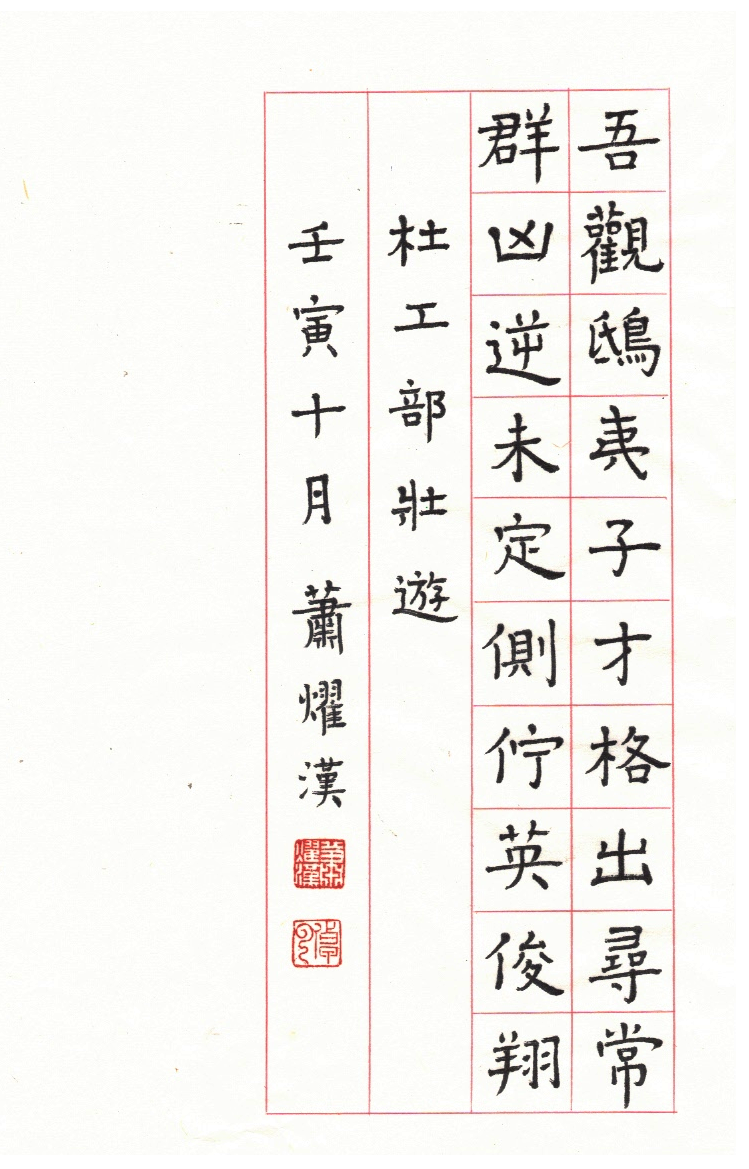 吾觀鴟夷子才格出尋常
群凶逆未定側佇英俊翔
杜工部壯遊
壬寅十月 蕭耀漢
蕭耀漢